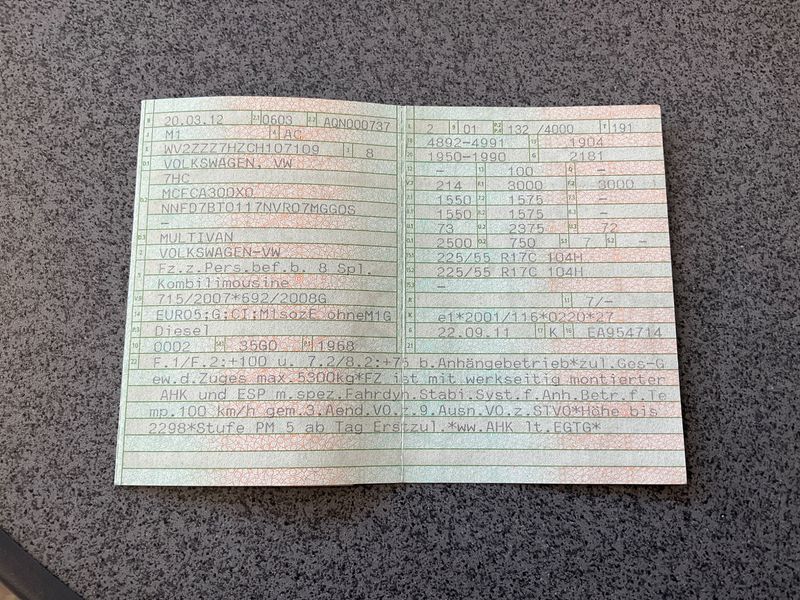 B 20.03.12 2.1 0603 2.2 AQN000737
J M1 4 AC
E WV2ZZZ7HZCH107109 3 8
D.1 VOLKSWAGEN, VW
7HC
D.2 MCFCA300X0
NNFD7BT0117NVR07MGG0S
–
D.3 MULTIVAN
2 VOLKSWAGEN-VW
5 Fz.z.Pers.bef.b. 8 Spl.
Kombilimousine
V.9 715/2007*692/2008G
14 EURO5;G;CI;M1sozE ohneM1G
P.3 Diesel
10 0002 14.1 35G0 P.1 1968
L 2 9 01 P.2 P.4 132 /4000 T 191
18 4892-4991 19 1904
20 1950-1990 G 2181
12 – 13 100 Q –
V.7 214 F.1 3000 F.2 3000
7.1 1550 7.2 1575 7.3 –
8.1 1550 8.2 1575 8.3 –
U.1 73 U.2 2375 U.3 72
O.1 2500 O.2 750 S.1 7 S.2 –
15.1 225/55 R17C 104H
15.2 225/55 R17C 104H
15.3 –
R 11 7/–
K e1*2001/116*0220*27
6 22.09.11 17 K 16 EA954714
21
22 F.1/F.2:+100 u. 7.2/8.2:+75 b.Anhängebetrieb*zul.Ges-G
ew.d.Zuges max.5300kg*FZ ist mit werkseitig montierter
AHK und ESP m.spez.Fahrdyn.Stabi.Syst.f.Anh.Betr.f.Te
mp.100 km/h gem.3.Aend.VO.z.9.Ausn.VO.z.STVO*Höhe bis
2298*Stufe PM 5 ab Tag Erstzul.*ww.AHK lt.EGTG*